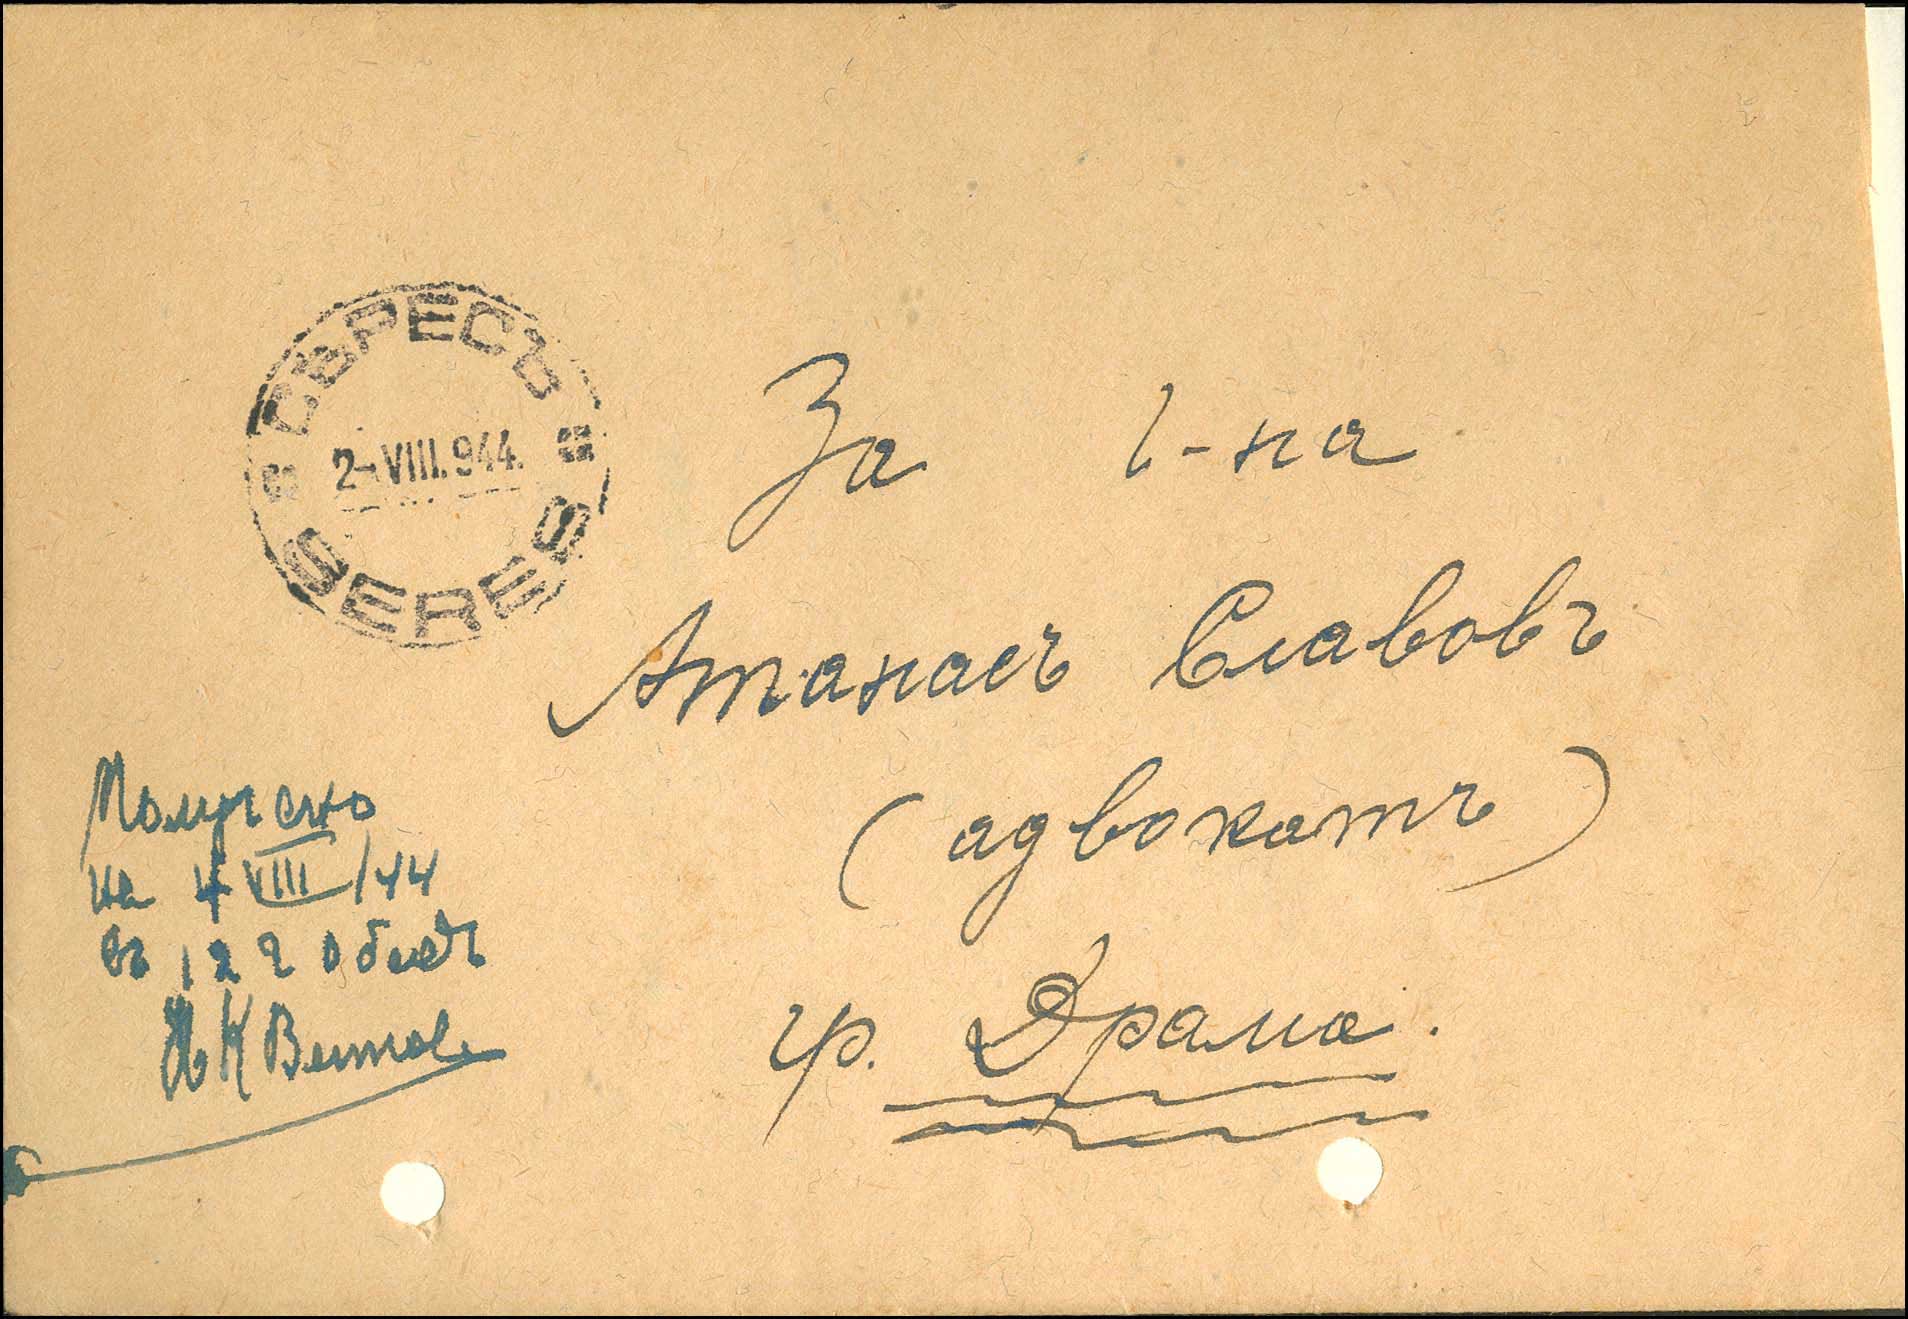 СѢРЕСЪ
2-VIII.944.
SERES
За г-на
Атанасъ Славовъ
(адвокатъ)
гр. Драма.
Получено
на 4 VIII/44
въ 12 ч обедъ